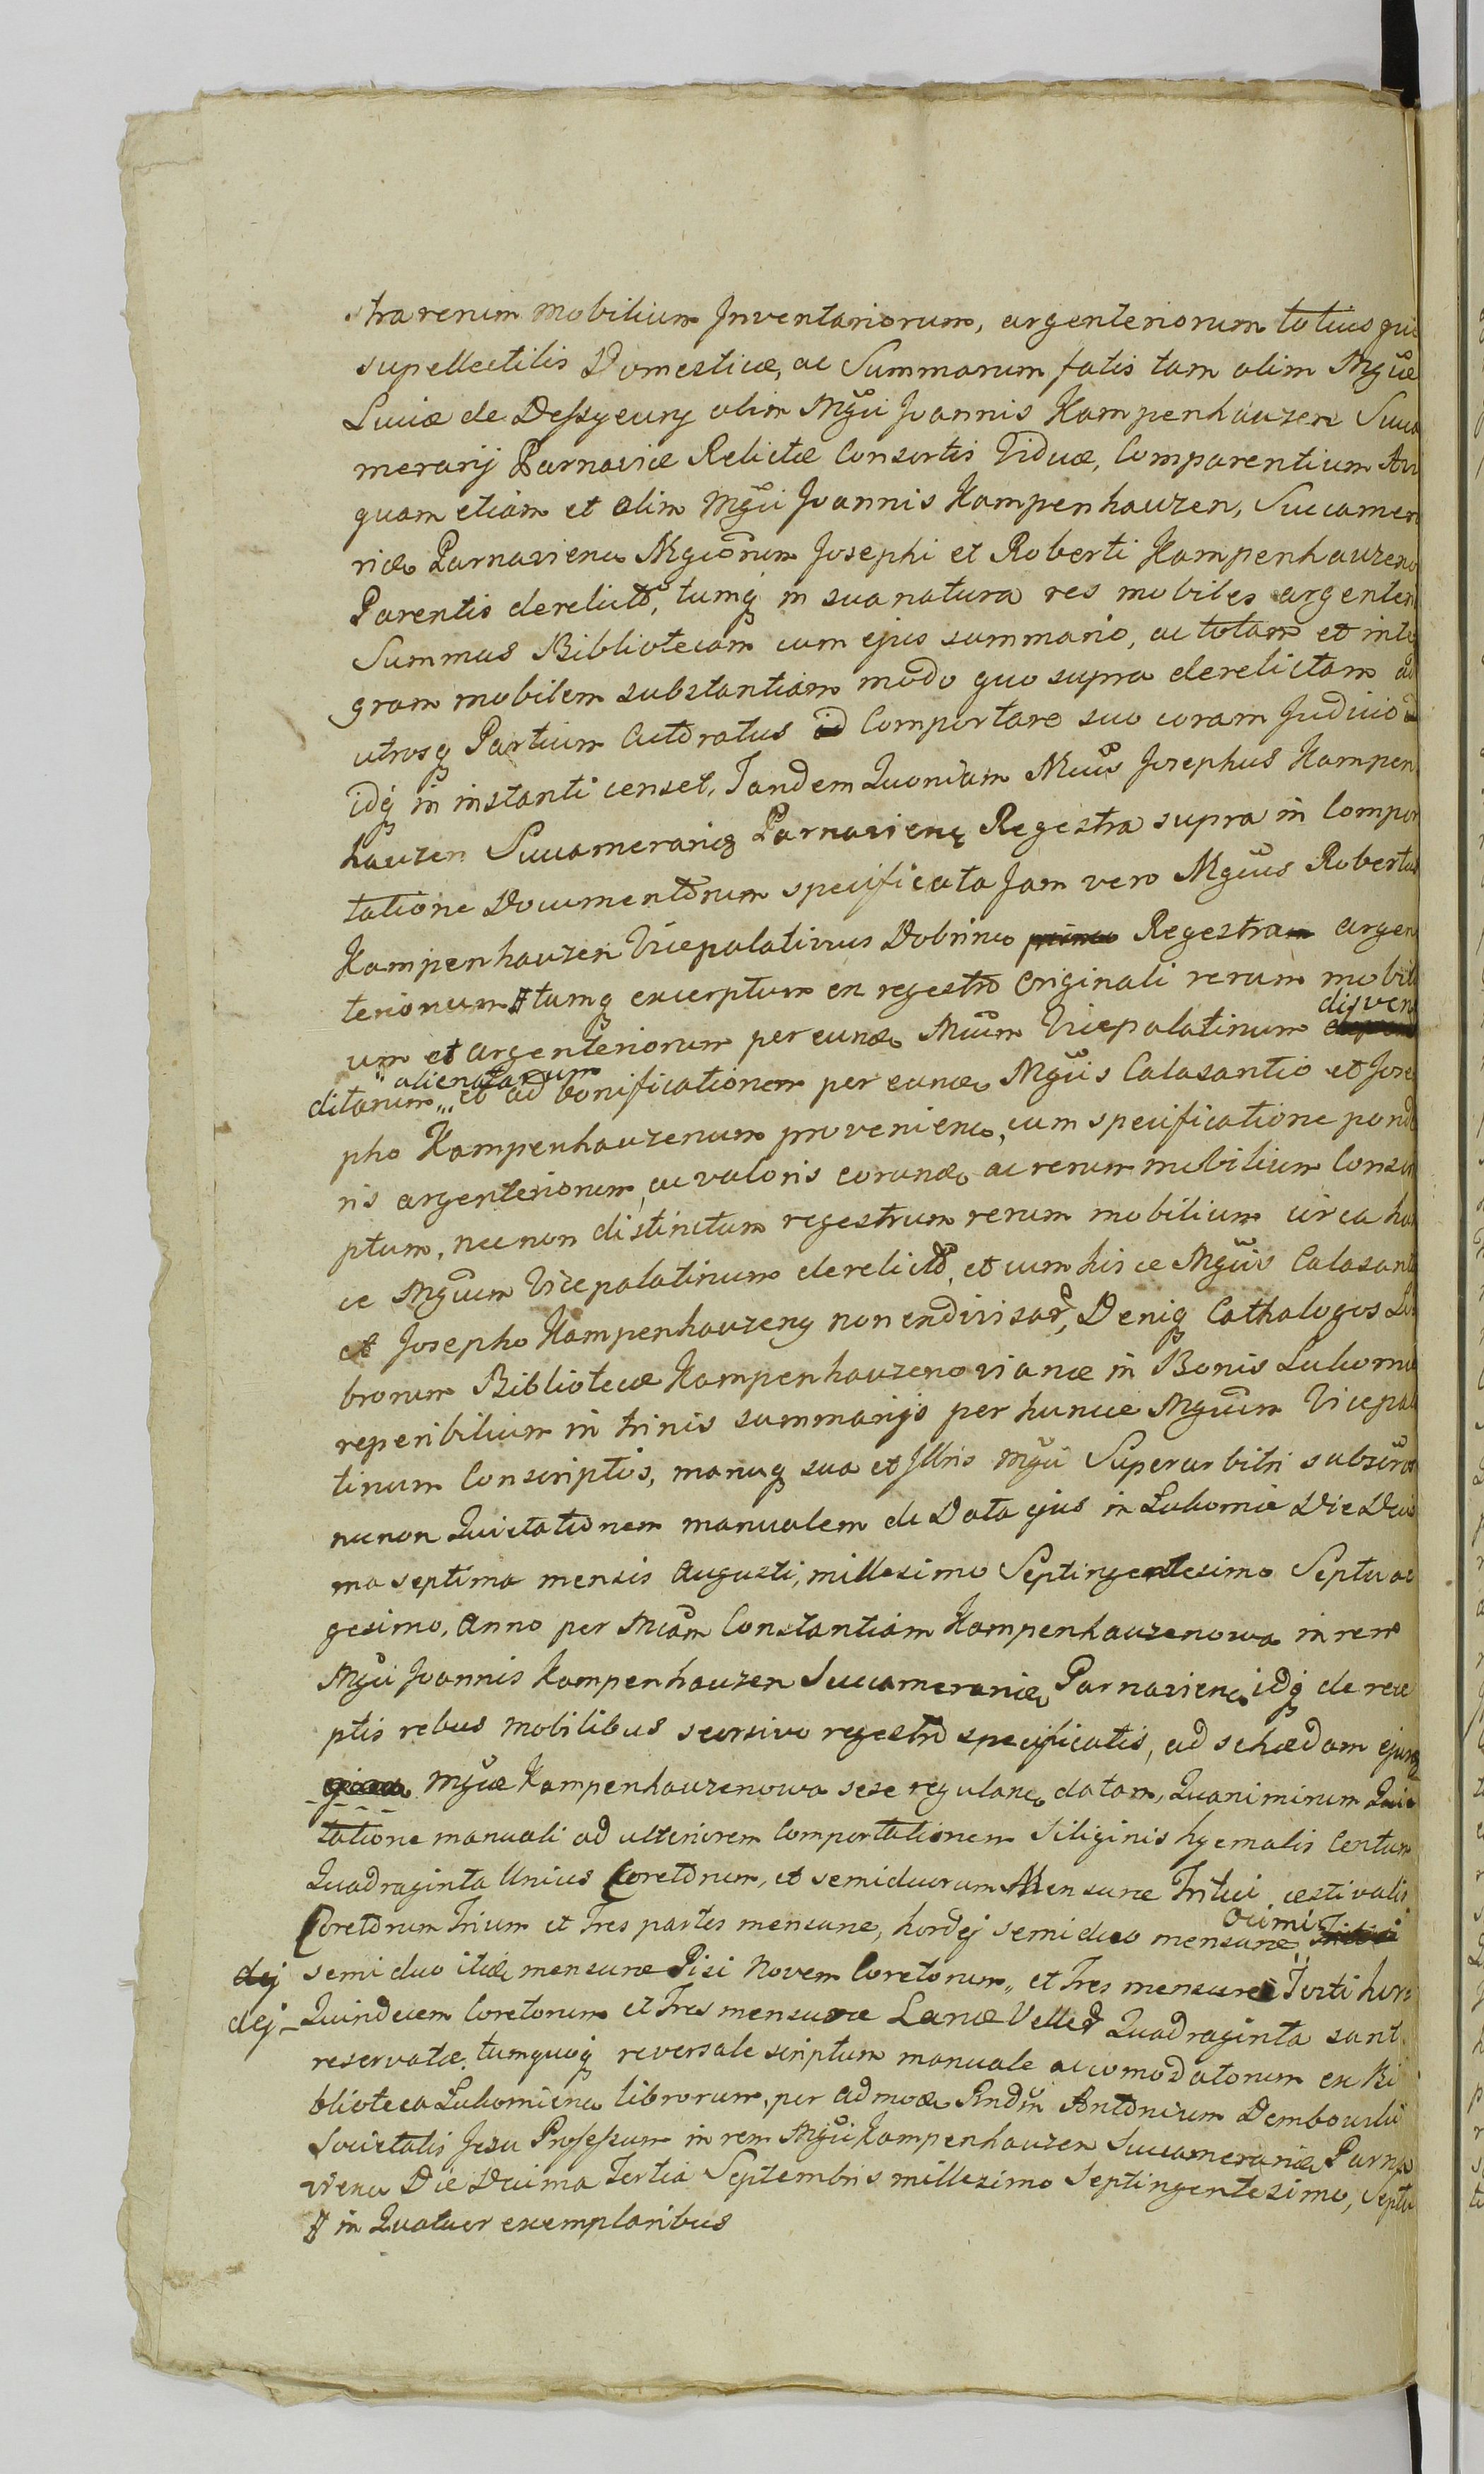 stra renum mobilium Inventariorum, argenteriorum totius qui
supellectilis Domesticæ, ac Summarum fatis tam olim Mgũæ
Luciæ de olim Mgũi Joannis Kampenhauzen Succa
merarij Parnaviæ Relictæ Consortis Viduæ, Comparentium Av
quam etiam et olim Mgũi Joannis Kampenhauzen, Succamer
Parnavienꝫ Mgiõrum Josephi et Roberti Kampenhauzeno
Parentis derelict̃, tumq in sua natura res mobiles argenteri
Summas Bibliotecam cum ejus summario, ac totam et inte
gram mobilem substantiam modo quo supra derelictam ad
utrosq Partium Cito͠ratus Comportare suo coram Judicio
idq in instanti censet, Tandem Quoniam Mcus Josephus Kampen
hauzen Succamerariꝫ Parnavienꝫ Regestra supra in Compor
tatione Documento͠rum specificata Jam vero Mgũus Robertus
Kampenhauzen Vicepalatinus Dobrinꝫ Regestram argen
teriorum # tumq excerptum ex regestro Originali rerum mobili
disven
um et argenteriorum per eundꝫ Mcum Vicepalatinum
alienatarum
ditarum,,, et ad bonificationem per eundꝫ Mgũis Calasantio et Jose
pho Kampenhauzenum provenienꝫ, cum specificatione ponde
ris argenteriorum, ac valoris eorundꝫ ac rerum mobilium Conscri
ptum, nec non distinctum regestrum rerum mobilium circa hun
ce Mgũum Vicepalatinum derelict̃, et cum hisce Mgũis Calasanti
et Josepho Kampenhauzenꝫ non endivisar̃, Deniq Cathalogos Li
brorum Bibliotecæ Kampenhauzenovianæ in Bonis Luhomiæ
reperibilium in trinis summarijs per huncce Mgũum Vicepala
tinum Conscriptos, manuq sua et Illris Mgũi Superarbitri subscript
necnon Quietationem manualem de Data ejus in Luhomie Die Deci
ma septima mensis Augusti, millesimo Septingentesimo Septua
gesimo, Anno per Mcam Constantiam Kampenhauzenowa in rem
Mgũi Joannis Kampenhauzen Succamerariꝫ Parnavienꝫ idq de rece
ptis rebus mobilibus seorsivo regestro specificatis, ad schædam ejus
Mgũæ Kampenhauzenowa sese regulanꝫ datam, Qua nimirum Quie
tatione manuali ad ulteriorem Comportationem siliginis hyemalis Centum
Quadraginta Unius Coreto͠rum, et semiduorum Mensuræ Tritici æstivalis
Coreto͠rum Trium et Tres partes mensuræ, hordej semiduo mensuræ
ocimi
dej semiduo itidꝫ mensuræ Pisi Novem Coretorum,, et Tres mensuræ Torti hor
dej- Quindecem Coretorum et Tres mensuræ Lanæ Velle͠r Quadraginta sunt
reservatæ, tumquoq reversale scriptum manuale accomodatorum ex Bi
blioteca Luhomienꝫ librorum, per admodꝫ Rndũm Antonium Dembowski
Societatis Jesu Professum in rem Mgũi Kampenhauzen Succamerariꝫ Parna
vienꝫ Die Decima Tertia Septembris millesimo Septingentesimo, Septu
# in Quatuor exemplaribus